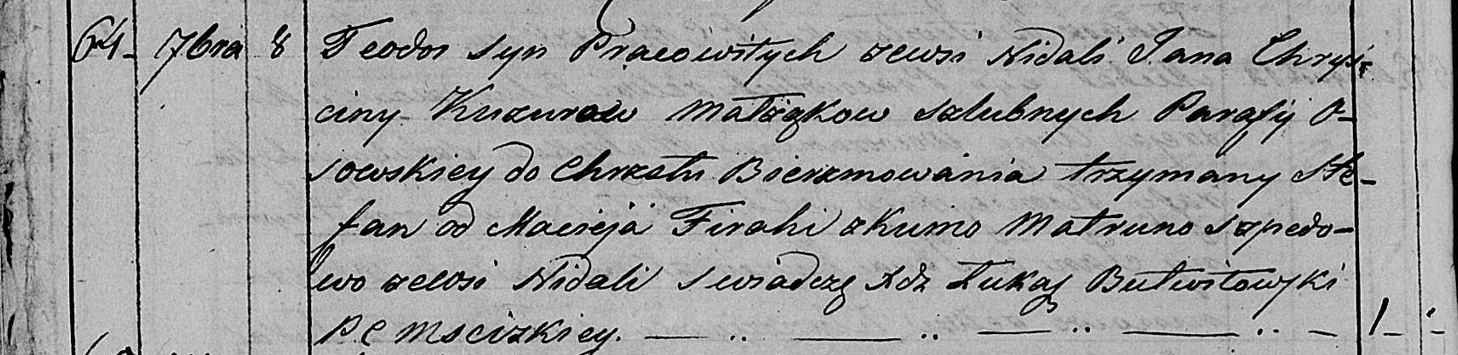 64- 7bra 8 Teodor syn Pracowitych zewsi Nidali Jana Chryś-
ciny Kuzurow Małżąkow szlubnych Parafij O-
sowskiey do Chrzstu Bierzmowania trzymany Ste-
fan od Macieja Firahi z Kumo Matruno Szpedo-
wo zewsi Nidali swiadczę Xdz Łukasz Butwiłowski
P C Mscizkiey. 1-